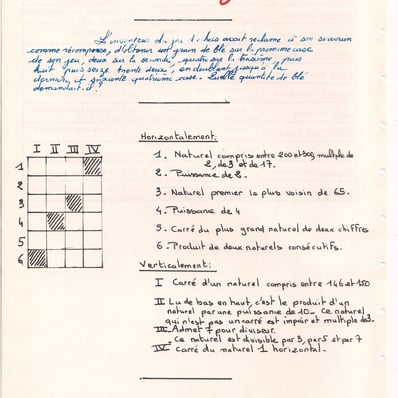 L'inventeur du jeu d'échecs avait réclamé à son souverain
comme récompense, d'obtenir un grain de blé sur la première case
de son jeu, deux sur la seconde, quatre sur la troisième, puis
huit puis seize trente deux, en doublant jusqu'à la
dernière, et soixante quatrième case. Quelle quantité de blé
demandait-il?
Horizontalement:
1. Naturel compris entre 200 et 309, multiple de
2, de 3 et de 17.
2. Puissance de 2.
3. Naturel premier le plus voisin de 65.
4. Puissance de 4
5. Carré du plus grand naturel de deux chiffres
6. Produit de deux naturels consécutifs.
Verticalement:
I Carré d'un naturel compris entre 146 et 150
II Lu de bas en haut, c'est le produit d'un
naturel par une puissance de 10. Ce naturel
qui n'est pas un carré est impair et multiple de 3.
III Admet 7 pour diviseur.
Ce naturel est divisible par 3, par 5 et par 7
IV Carré du naturel 1 horizontal.
I II III IV
1
2
3
4
5
6